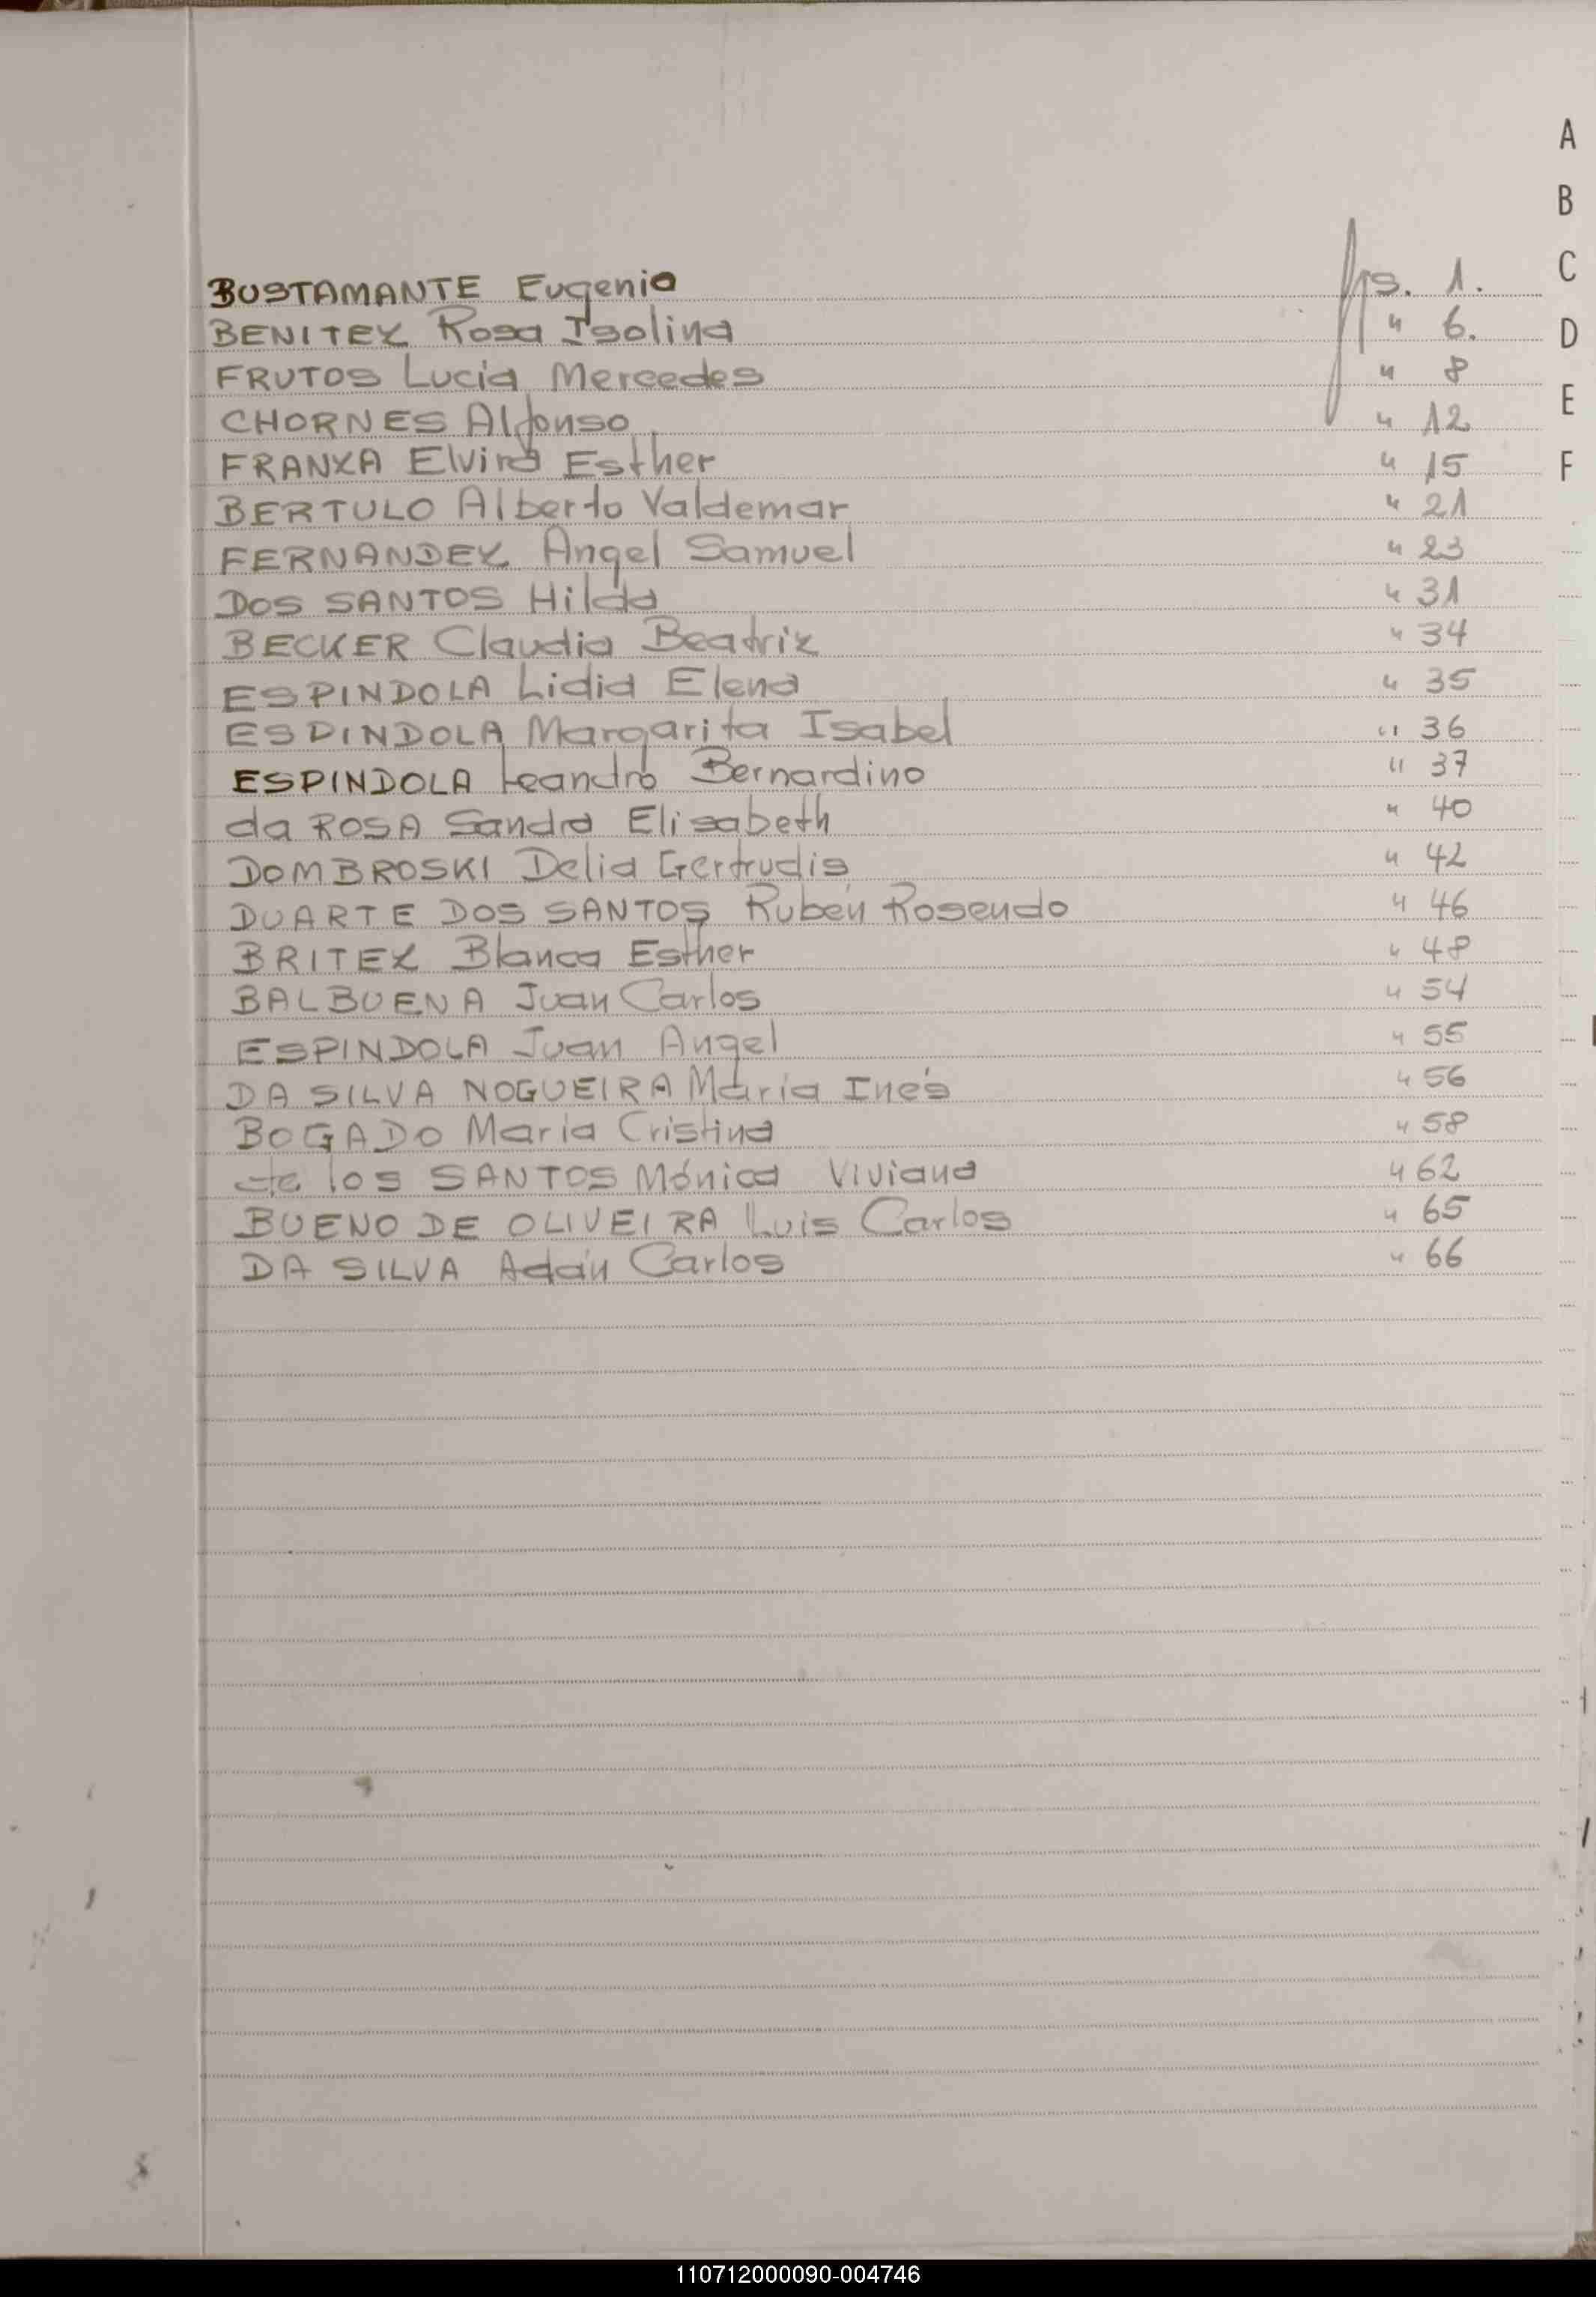 A
B
C
D
E
F
BUSTAMANTE Eugenio fs. 1.
BENITEZ Rosa Isolina " 6.
FRUTOS Lucia Mercedes " 8
CHORNES Alfonso " 12
FRANZA Elvira Esther " 15
BERTULO Alberto Valdemar " 21
FERNANDEZ Angel Samuel " 23
DOS SANTOS Hilda " 31
BECKER Claudia Beatriz " 34
ESPINDOLA Lidia Elena " 35
ESPINDOLA Margarita Isabel " 36
ESPINDOLA Leandro Bernardino " 37
da ROSA Sandra Elisabeth " 40
DOMBROSKI Delia Gertrudis " 42
DUARTE DOS SANTOS Rubén Rosendo " 46
BRITEZ Blanca Esther " 48
BALBUENA Juan Carlos " 54
ESPINDOLA Juan Angel " 55
DA SILVA NOGUEIRA María Inés " 56
BOGADO Maria Cristina " 58
de los SANTOS Mónica Viviana " 62
BUENO DE OLIVEIRA Luis Carlos " 65
DA SILVA Adán Carlos " 66
110712000090-004746